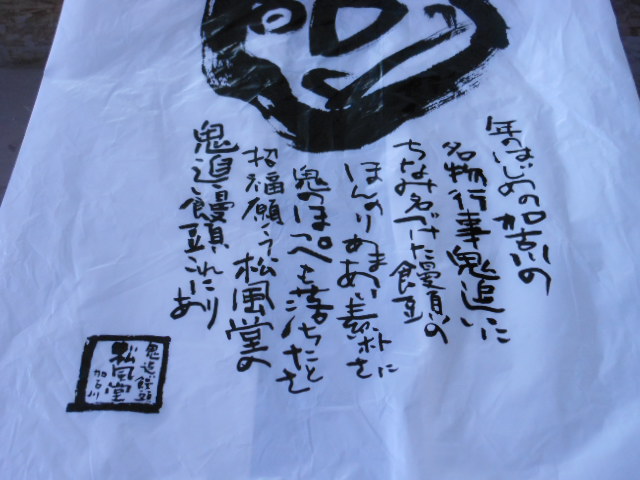 年のはじめの加古川の
名物行事鬼追いに
ちなみ名づけた饅頭の
ほんのりあまあい素朴さに
鬼のほっぺも落ちたとさ
招福願って松風堂の
鬼追饅頭これにあり
鬼追饅頭
松風堂
加古川